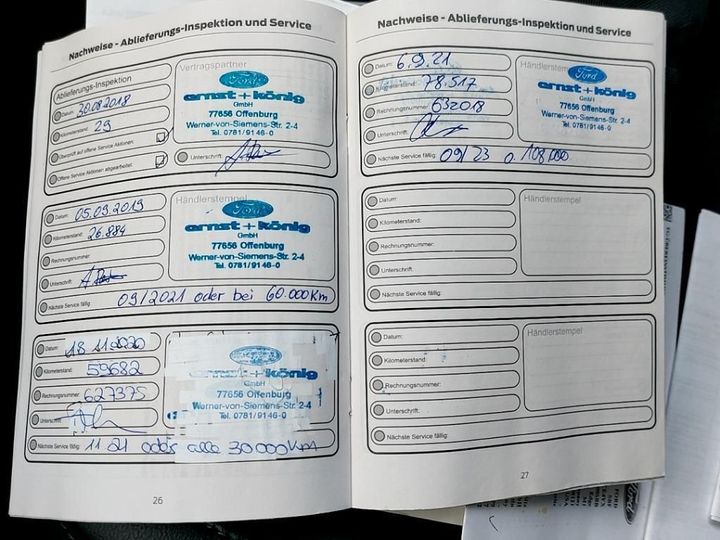 Nachweise - Ablieferungs-Inspektion und Service
Ablieferungs-Inspektion
Datum: 30.08.2018
Kilometerstand: 29
Überprüft auf offene Service Aktionen:
Offene Service Aktionen abgearbeitet:
Vertragspartner
Ford
ernst+könig
GmbH
77656 Offenburg
Werner-von-Siemens-Str. 2-4
Tel. 0781/9146-0
Unterschrift:
Datum: 05.09.2019
Kilometerstand: 26.884
Rechnungsnummer:
Unterschrift:
Händlerstempel
Ford
ernst+könig
GmbH
77656 Offenburg
Werner-von-Siemens-Str. 2-4
Tel. 0781/9146-0
Nächste Service fällig: 09/2021 oder bei 60.000Km
Datum: 18.11.2020
Kilometerstand: 59682
Rechnungsnummer: 627375
Unterschrift:
ernst+könig
GmbH
77656 Offenburg
Werner-von-Siemens-Str. 2-4
Tel. 0781/9146-0
Nächste Service fällig: 11 21 alle 30000Km
26
Nachweise - Ablieferungs-Inspektion und Service
Datum: 6.9.21
Kilometerstand: 78.517
Rechnungsnummer: 632018
Unterschrift:
Händlerstempel
Ford
ernst+könig
GmbH
77656 Offenburg
Werner-von-Siemens-Str. 2-4
Tel. 0781/9146-0
Nächste Service fällig: 09/23 o. 108.000
Datum:
Kilometerstand:
Rechnungsnummer:
Unterschrift:
Händlerstempel
Nächste Service fällig:
Datum:
Kilometerstand:
Rechnungsnummer:
Unterschrift:
Händlerstempel
Nächste Service fällig:
27
Ford